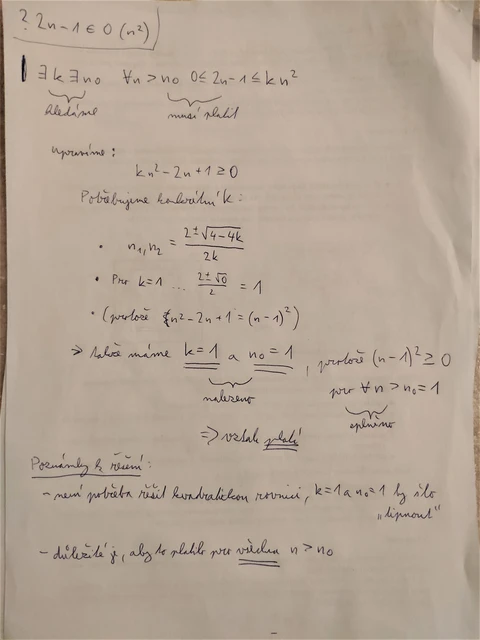 ? 2n-1 ∈ O(n²)
∃k ∃n₀ ∀n > n₀ 0 ≤ 2n-1 ≤ kn²
hledáme musí platit
upravíme:
kn² - 2n + 1 ≥ 0
Potřebujeme konkrétní k:
• n₁, n₂ = (2 ± √(4-4k)) / 2k
• Pro k=1 ... (2 ± √0) / 2 = 1
• (protože n² - 2n + 1 = (n-1)²)
⇒ takže máme k=1 a n₀=1, protože (n-1)² ≥ 0
pro ∀n > n₀ = 1
nalezeno
splněno
⇒ vztah platí
Poznámky k řešení:
- není potřeba řešit kvadratickou rovnici, k=1 a n₀=1 by šlo
„tipnout"
- důležité je, aby to platilo pro všechna n > n₀